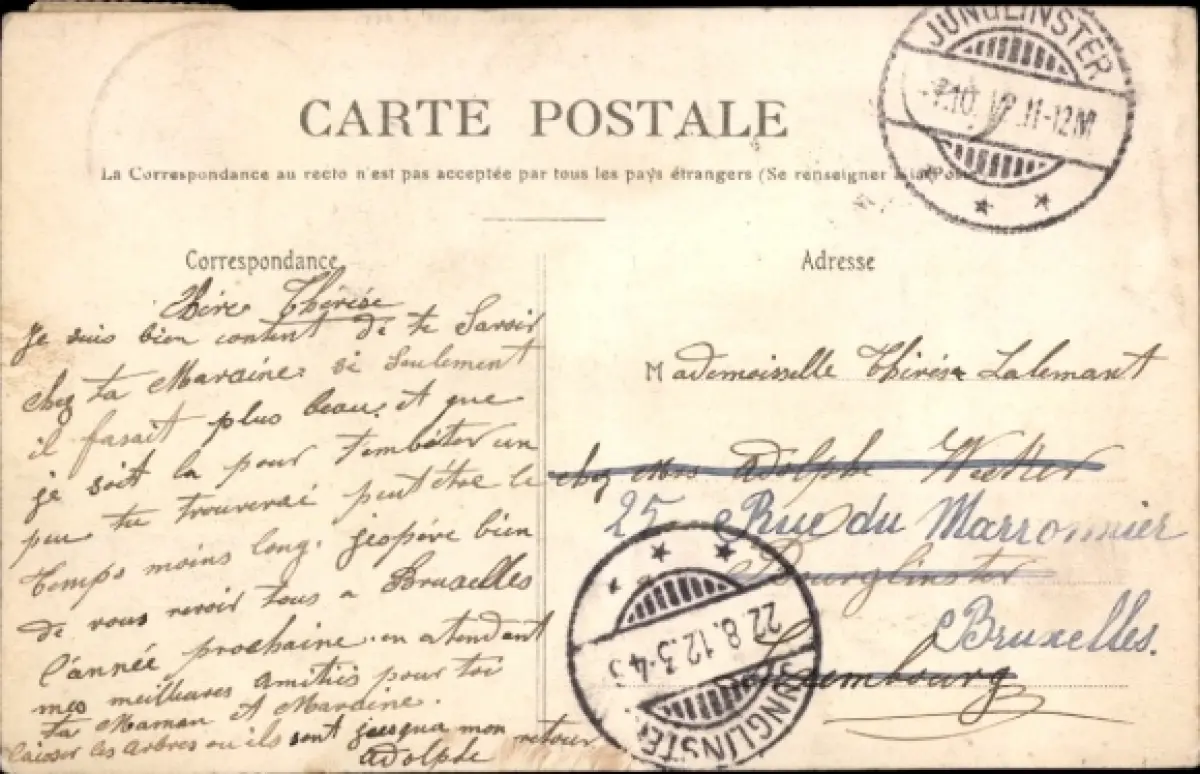 CARTE POSTALE
La Correspondance au recto n'est pas acceptée par tous les pays étrangers (Se renseigner à la Poste
JUNGLINSTER
10. 12. 11-12M
Correspondance
Chère Thérèse
je suis bien content de te Savoir
chez ta Maraine si Seulement
il fasait plus beau. et que
je soit la pour t'embêter un
peu tu trouverai peut être le
temps moins long. jespère bien
de vous revoir tous a Bruxelles
l'année prochaine. en atendant
mes meilleures amitiés pour toi
ta Maman et Maraine.
laisser les arbres ou ils sont jusqua mon retour
adolphe
Adresse
Mademoisselle Thérèse Lalemant
chez Mrs adolphe
25 Rue du Marronnier
Bourglinster
Bruxelles.
Luxembourg
22.8.12.3-4
JUNGLINSTER